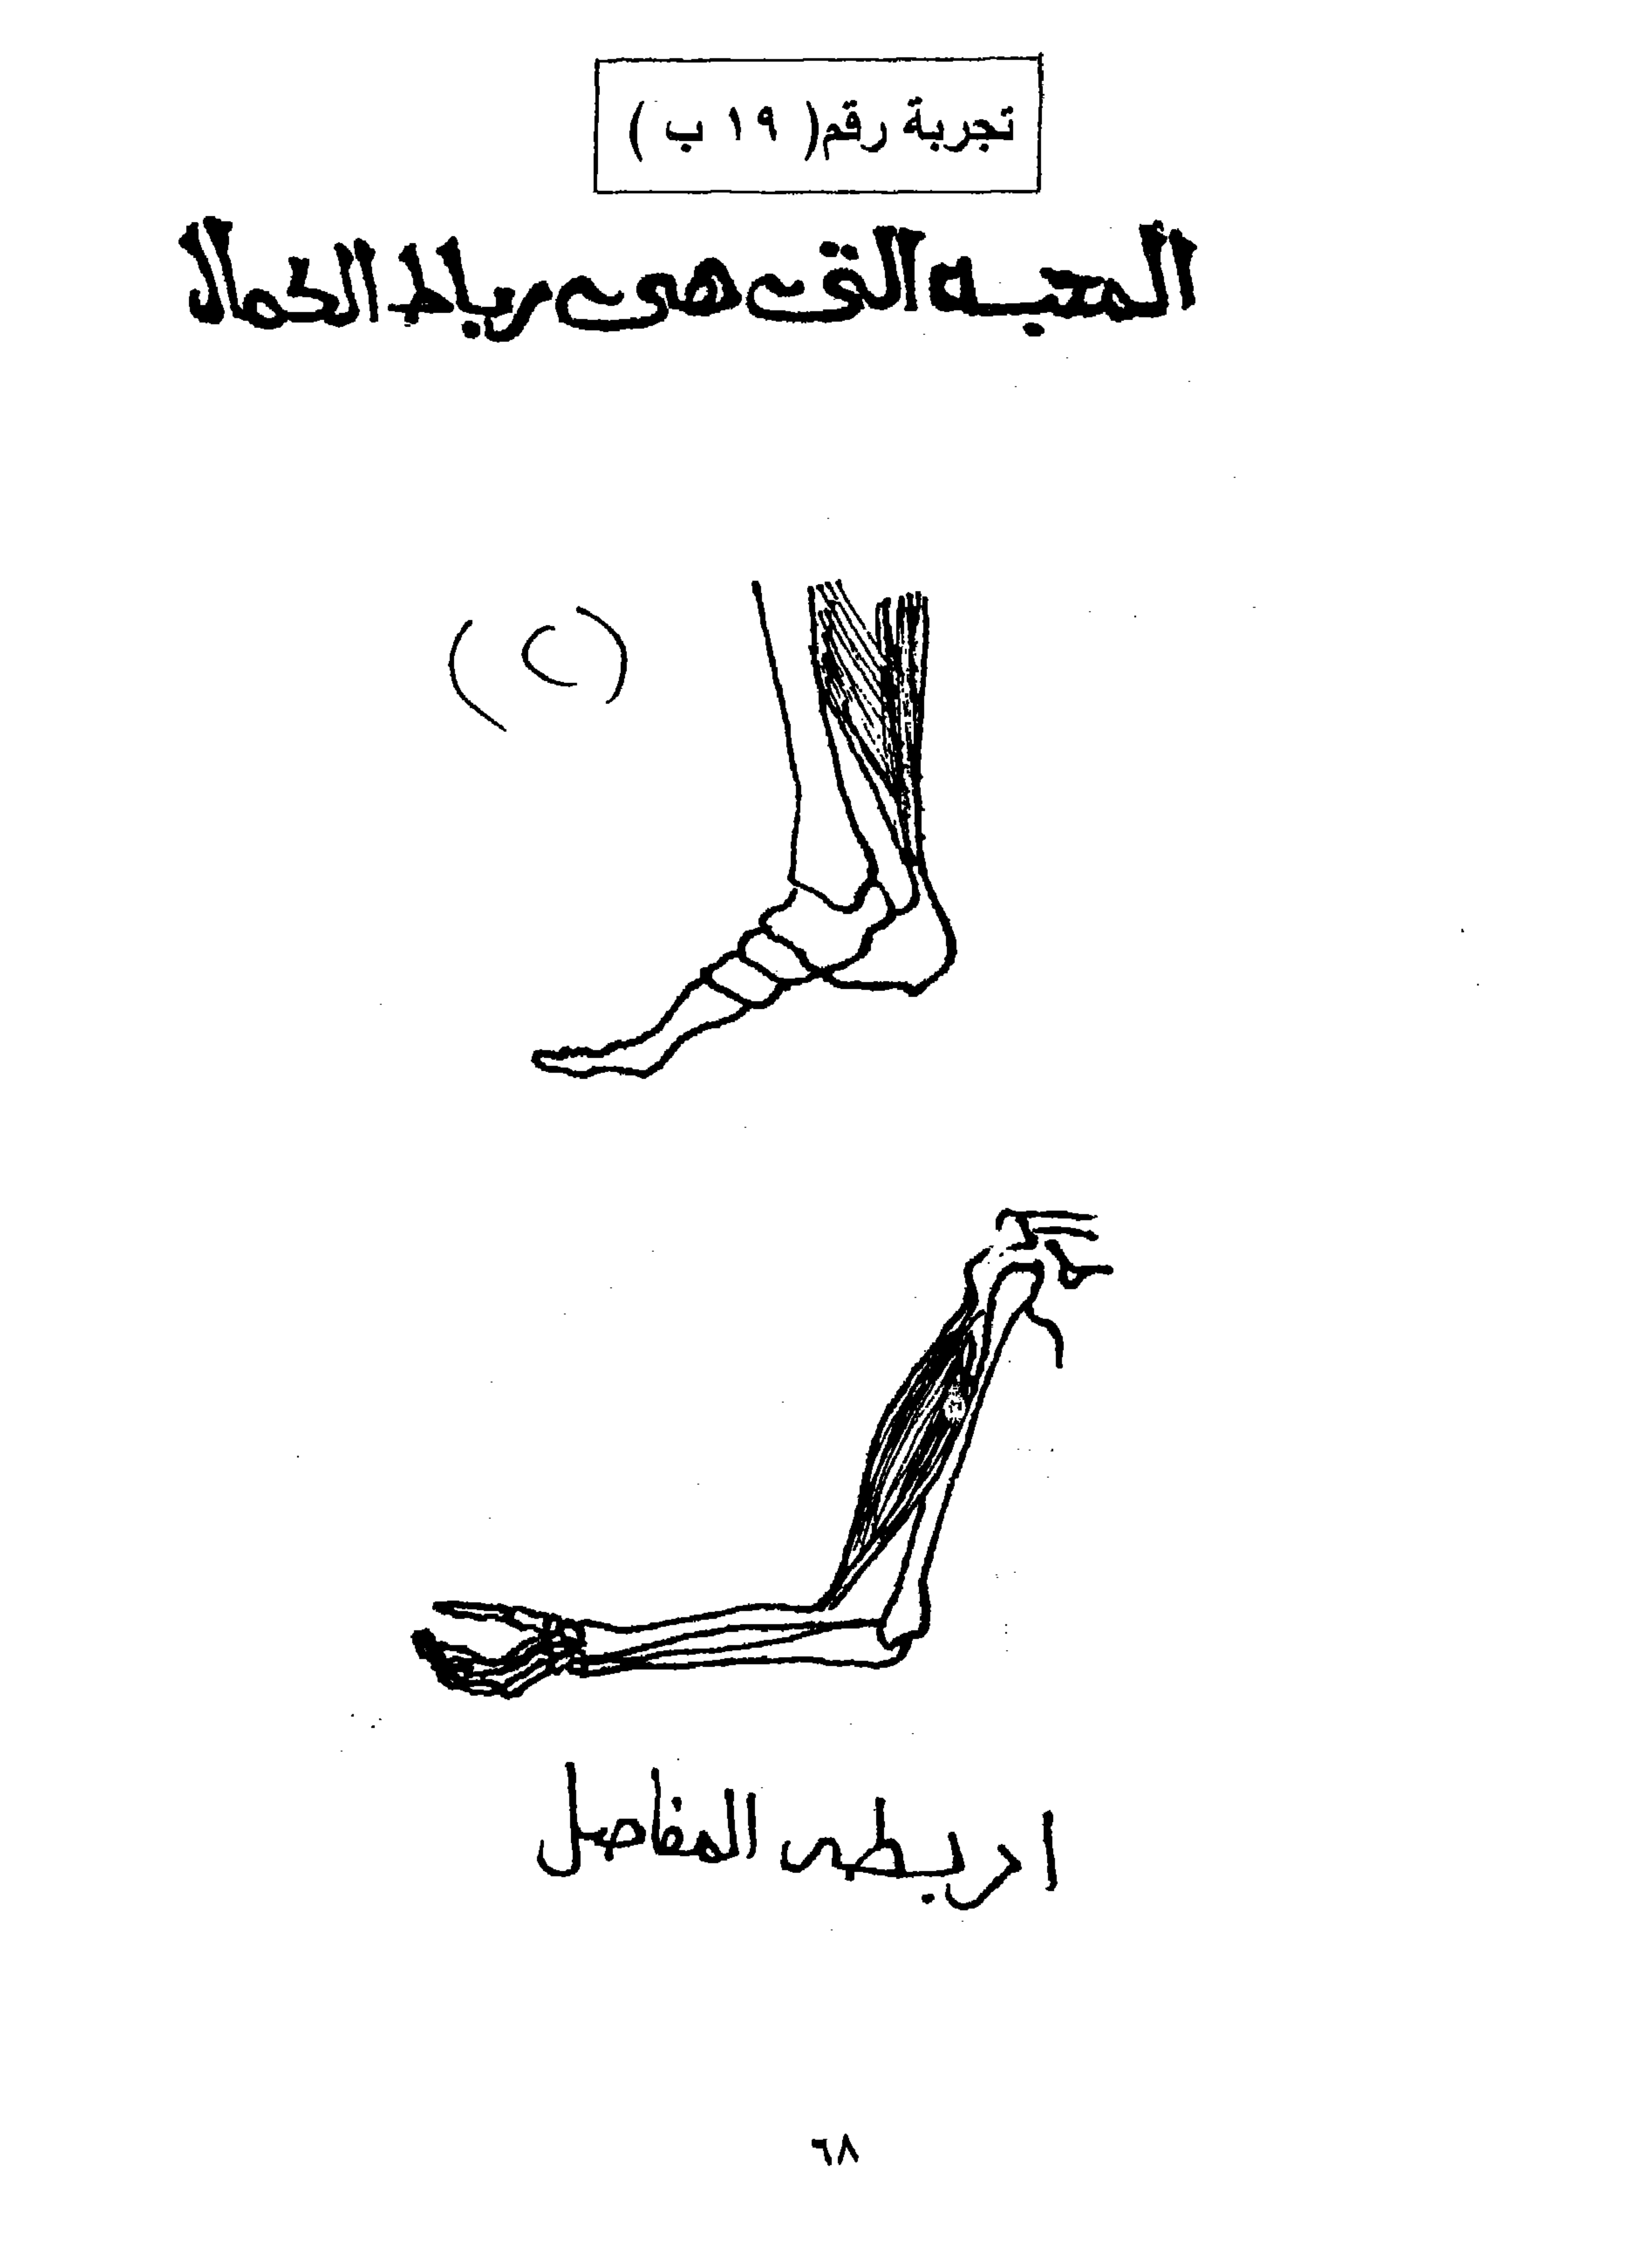 تجربة رقم( ١٩ ب )
المحبه التى هى رباط الكمال
( ٢ )
اربطه المفاصل
٦٨